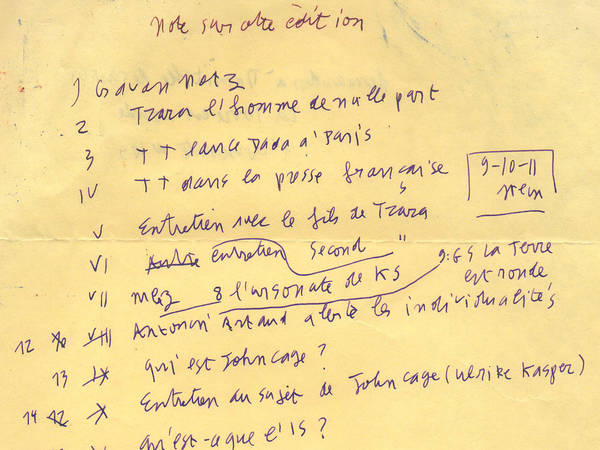 Note sur cette édition
1) Gavan Notz
2 Tzara l'homme de nulle part
3 TT lance Dada à Paris
IV TT dans la presse française
9-10-11
Stein
V Entretien avec le fils de Tzara
VI Autre entretien Second "
9: GS La Terre est ronde
VII 8 l'ursonate de KS
12 VIII Antonin Artaud alerte les individualités
13 IX qui est John Cage ?
14 12 X Entretien au sujet de John Cage (Ulrike Kasper)
qu'est-ce que l'IS ?